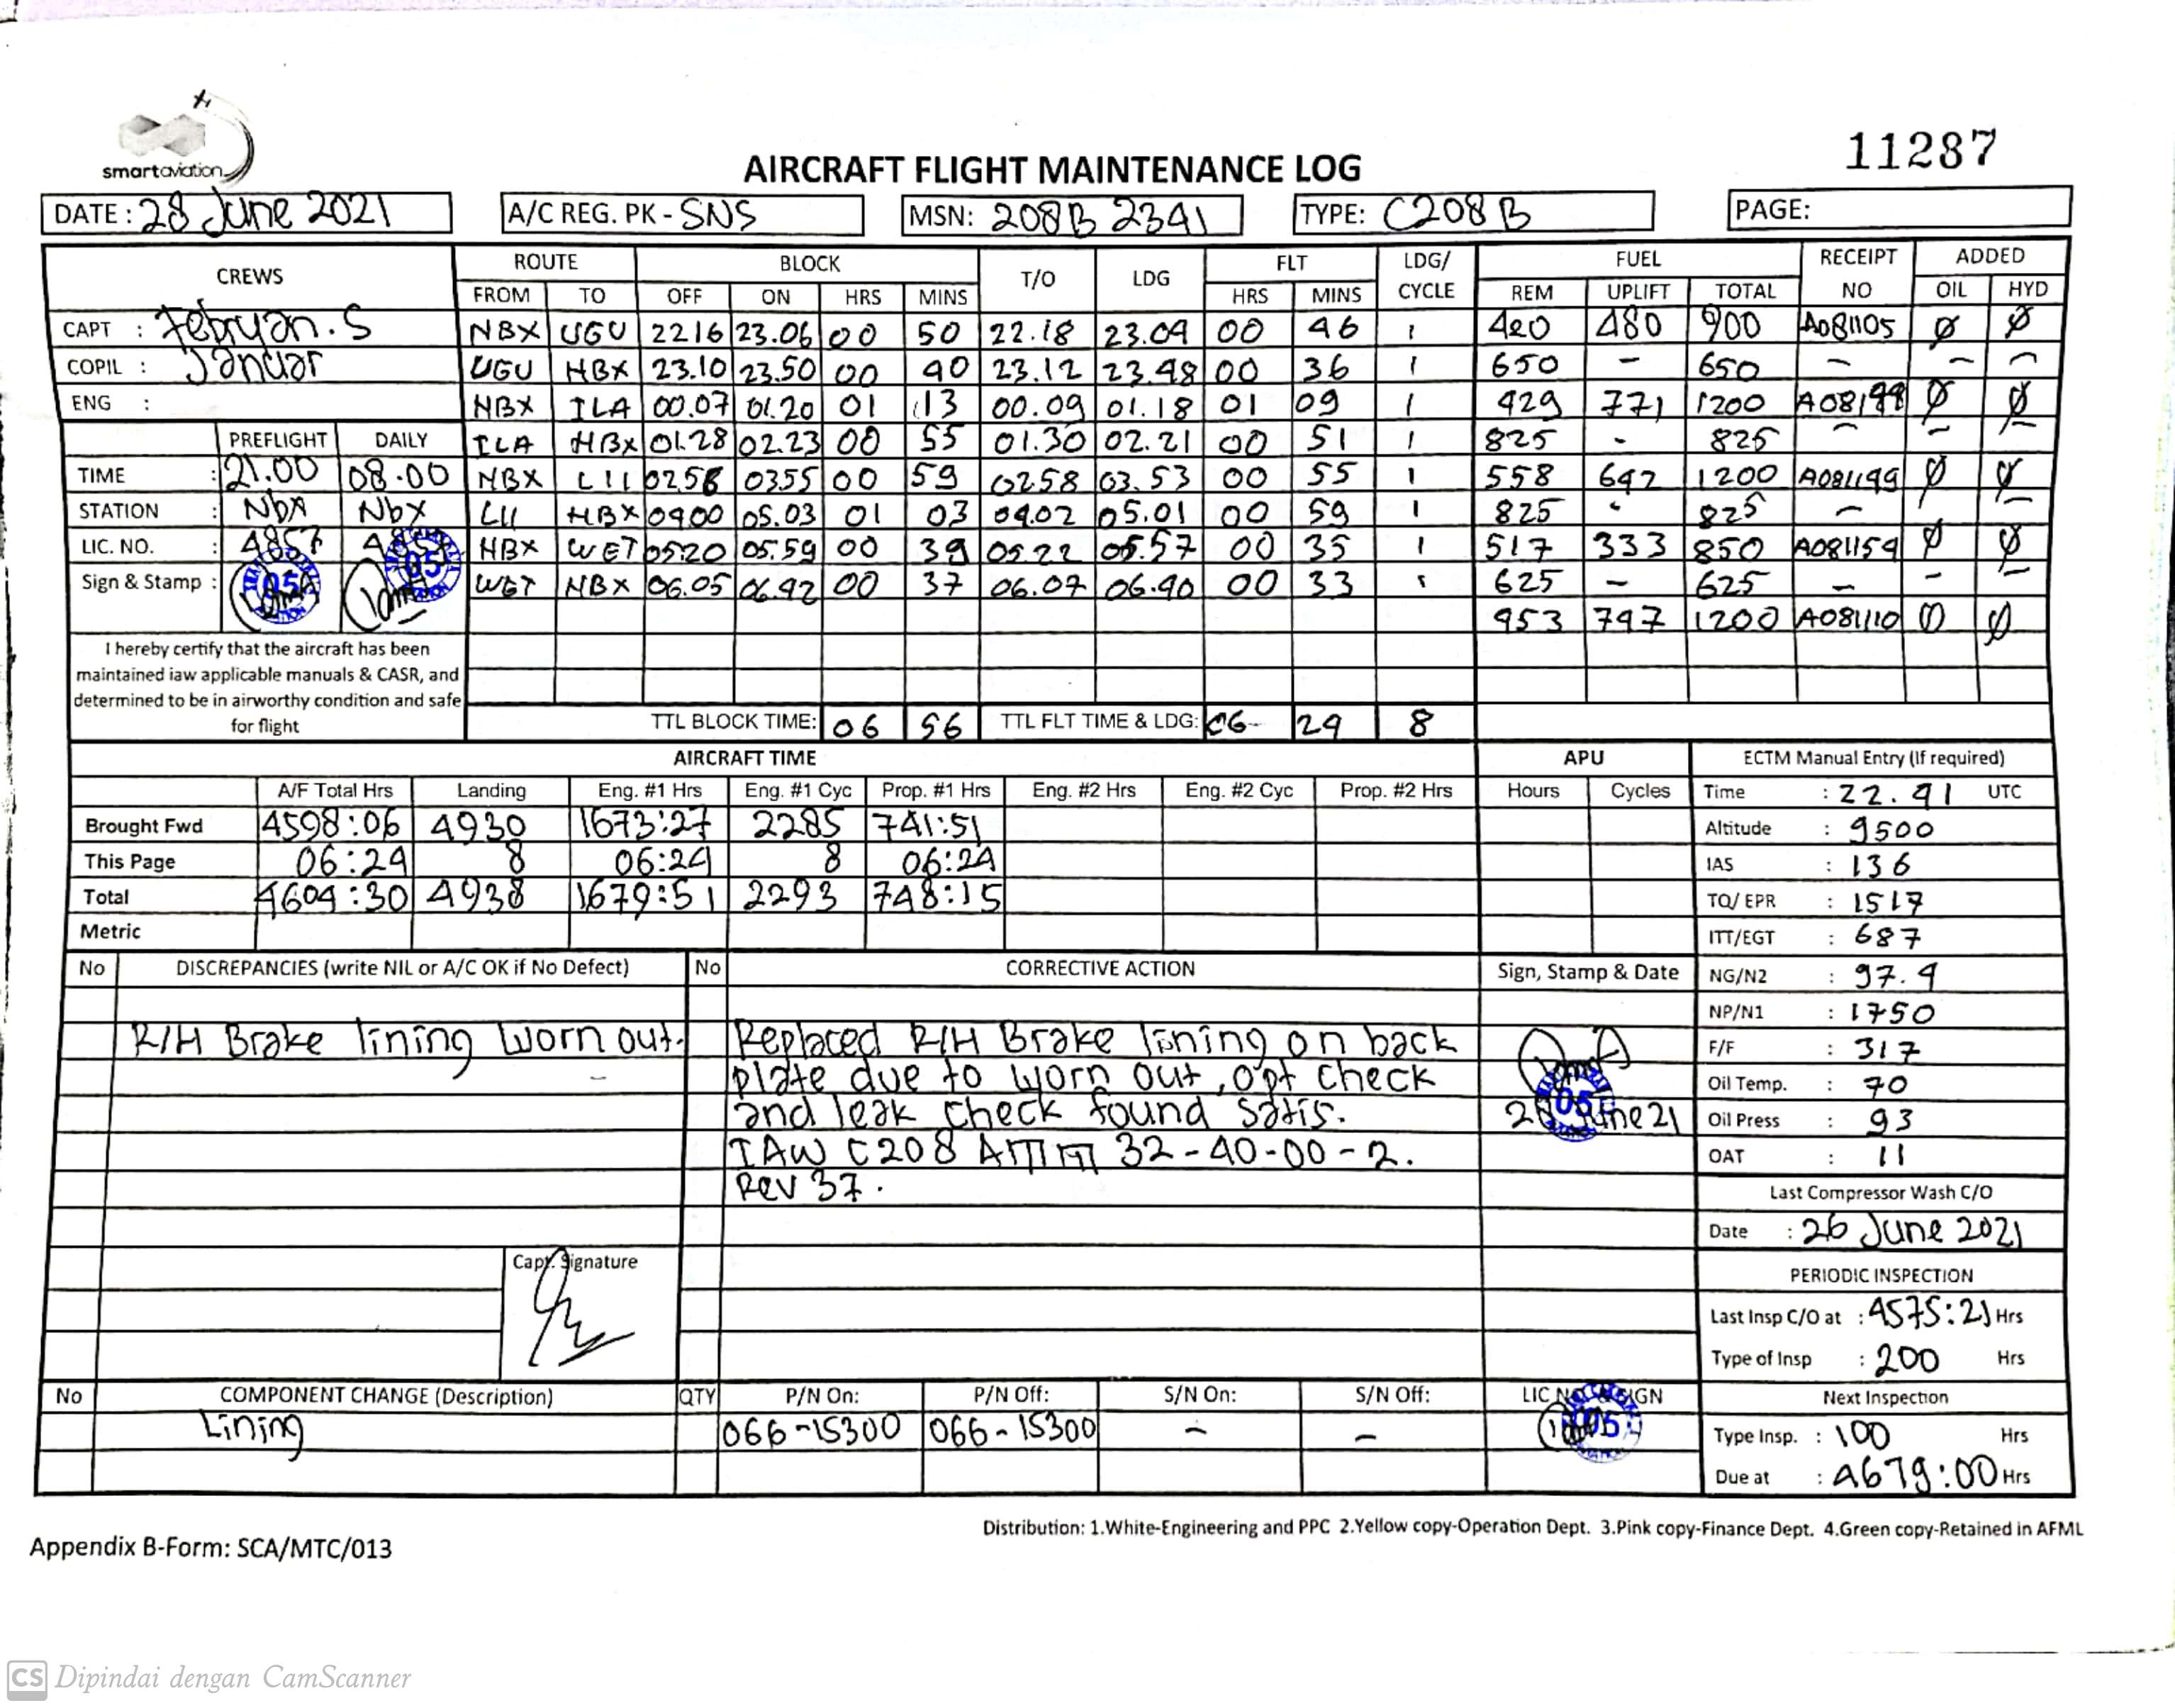 smartaviation
11287
AIRCRAFT FLIGHT MAINTENANCE LOG
DATE : 28 June 2021 A/C REG. PK - SNS MSN: 208B 2341 TYPE: C208B PAGE:
CREWS ROUTE BLOCK T/O LDG FLT LDG/ CYCLE FUEL RECEIPT NO ADDED
FROM TO OFF ON HRS MINS HRS MINS REM UPLIFT TOTAL OIL HYD
CAPT : Febryan.S NBX UGU 2216 23.06 00 50 22.18 23.04 00 46 1 420 480 900 A081105 Ø Ø
COPIL : Januar UGU NBX 23.10 23.50 00 40 23.12 23.48 00 36 1 650 - 650 - - -
ENG : NBX ILA 00.07 01.20 01 13 00.09 01.18 01 09 1 429 771 1200 Ø Ø
PREFLIGHT DAILY ILA NBX 01.28 02.23 00 55 01.30 02.21 00 51 1 825 - 825 - - -
TIME : 21.00 08.00 NBX LII 0256 0355 00 59 0258 03.53 00 55 1 558 642 1200 A081199 Ø Ø
STATION : NBX NBX LII NBX 0400 05.03 01 03 04.02 05.01 00 59 1 825 - 825 - -
LIC. NO. : 4857 NBX WET 0520 05.59 00 39 05.22 05.57 00 35 1 517 333 850 A081154 Ø Ø
Sign & Stamp : 05 05 WET NBX 06.05 06.42 00 37 06.07 06.40 00 33 1 625 - 625 - - -
953 747 1200 A081110 Ø Ø
I hereby certify that the aircraft has been
maintained iaw applicable manuals & CASR, and
determined to be in airworthy condition and safe
for flight
TTL BLOCK TIME: 06 56 TTL FLT TIME & LDG: 06 24 8
AIRCRAFT TIME APU ECTM Manual Entry (If required)
A/F Total Hrs Landing Eng. #1 Hrs Eng. #1 Cyc Prop. #1 Hrs Eng. #2 Hrs Eng. #2 Cyc Prop. #2 Hrs Hours Cycles Time : 22.41 UTC
Brought Fwd 4598:06 4930 1673:27 2285 741:51 Altitude : 9500
This Page 06:24 8 06:24 8 06:24 IAS : 136
Total 4604:30 4938 1679:51 2293 748:15 TQ/ EPR : 1517
Metric ITT/EGT : 687
No DISCREPANCIES (write NIL or A/C OK if No Defect) No CORRECTIVE ACTION Sign, Stamp & Date NG/N2 : 97.4
NP/N1 : 1750
R/H Brake lining worn out. Replaced R/H Brake lining on back F/F : 317
plate due to worn out, opt check Oil Temp. : 70
and leak check found satis. 05 June 21 Oil Press : 93
IAW C208 AMM 32-40-00-2. OAT : 11
Rev 37.
Last Compressor Wash C/O
Date : 26 June 2021
Capt. Signature
PERIODIC INSPECTION
Last Insp C/O at : 4575:21 Hrs
Type of Insp : 200 Hrs
No COMPONENT CHANGE (Description) QTY P/N On: P/N Off: S/N On: S/N Off: LIC NO & SIGN Next Inspection
Lining 066-15300 066-15300 - - 05 Type Insp. : 100 Hrs
Due at : 4679:00 Hrs
Distribution: 1.White-Engineering and PPC 2.Yellow copy-Operation Dept. 3.Pink copy-Finance Dept. 4.Green copy-Retained in AFML
Appendix B-Form: SCA/MTC/013
CS Dipindai dengan CamScanner